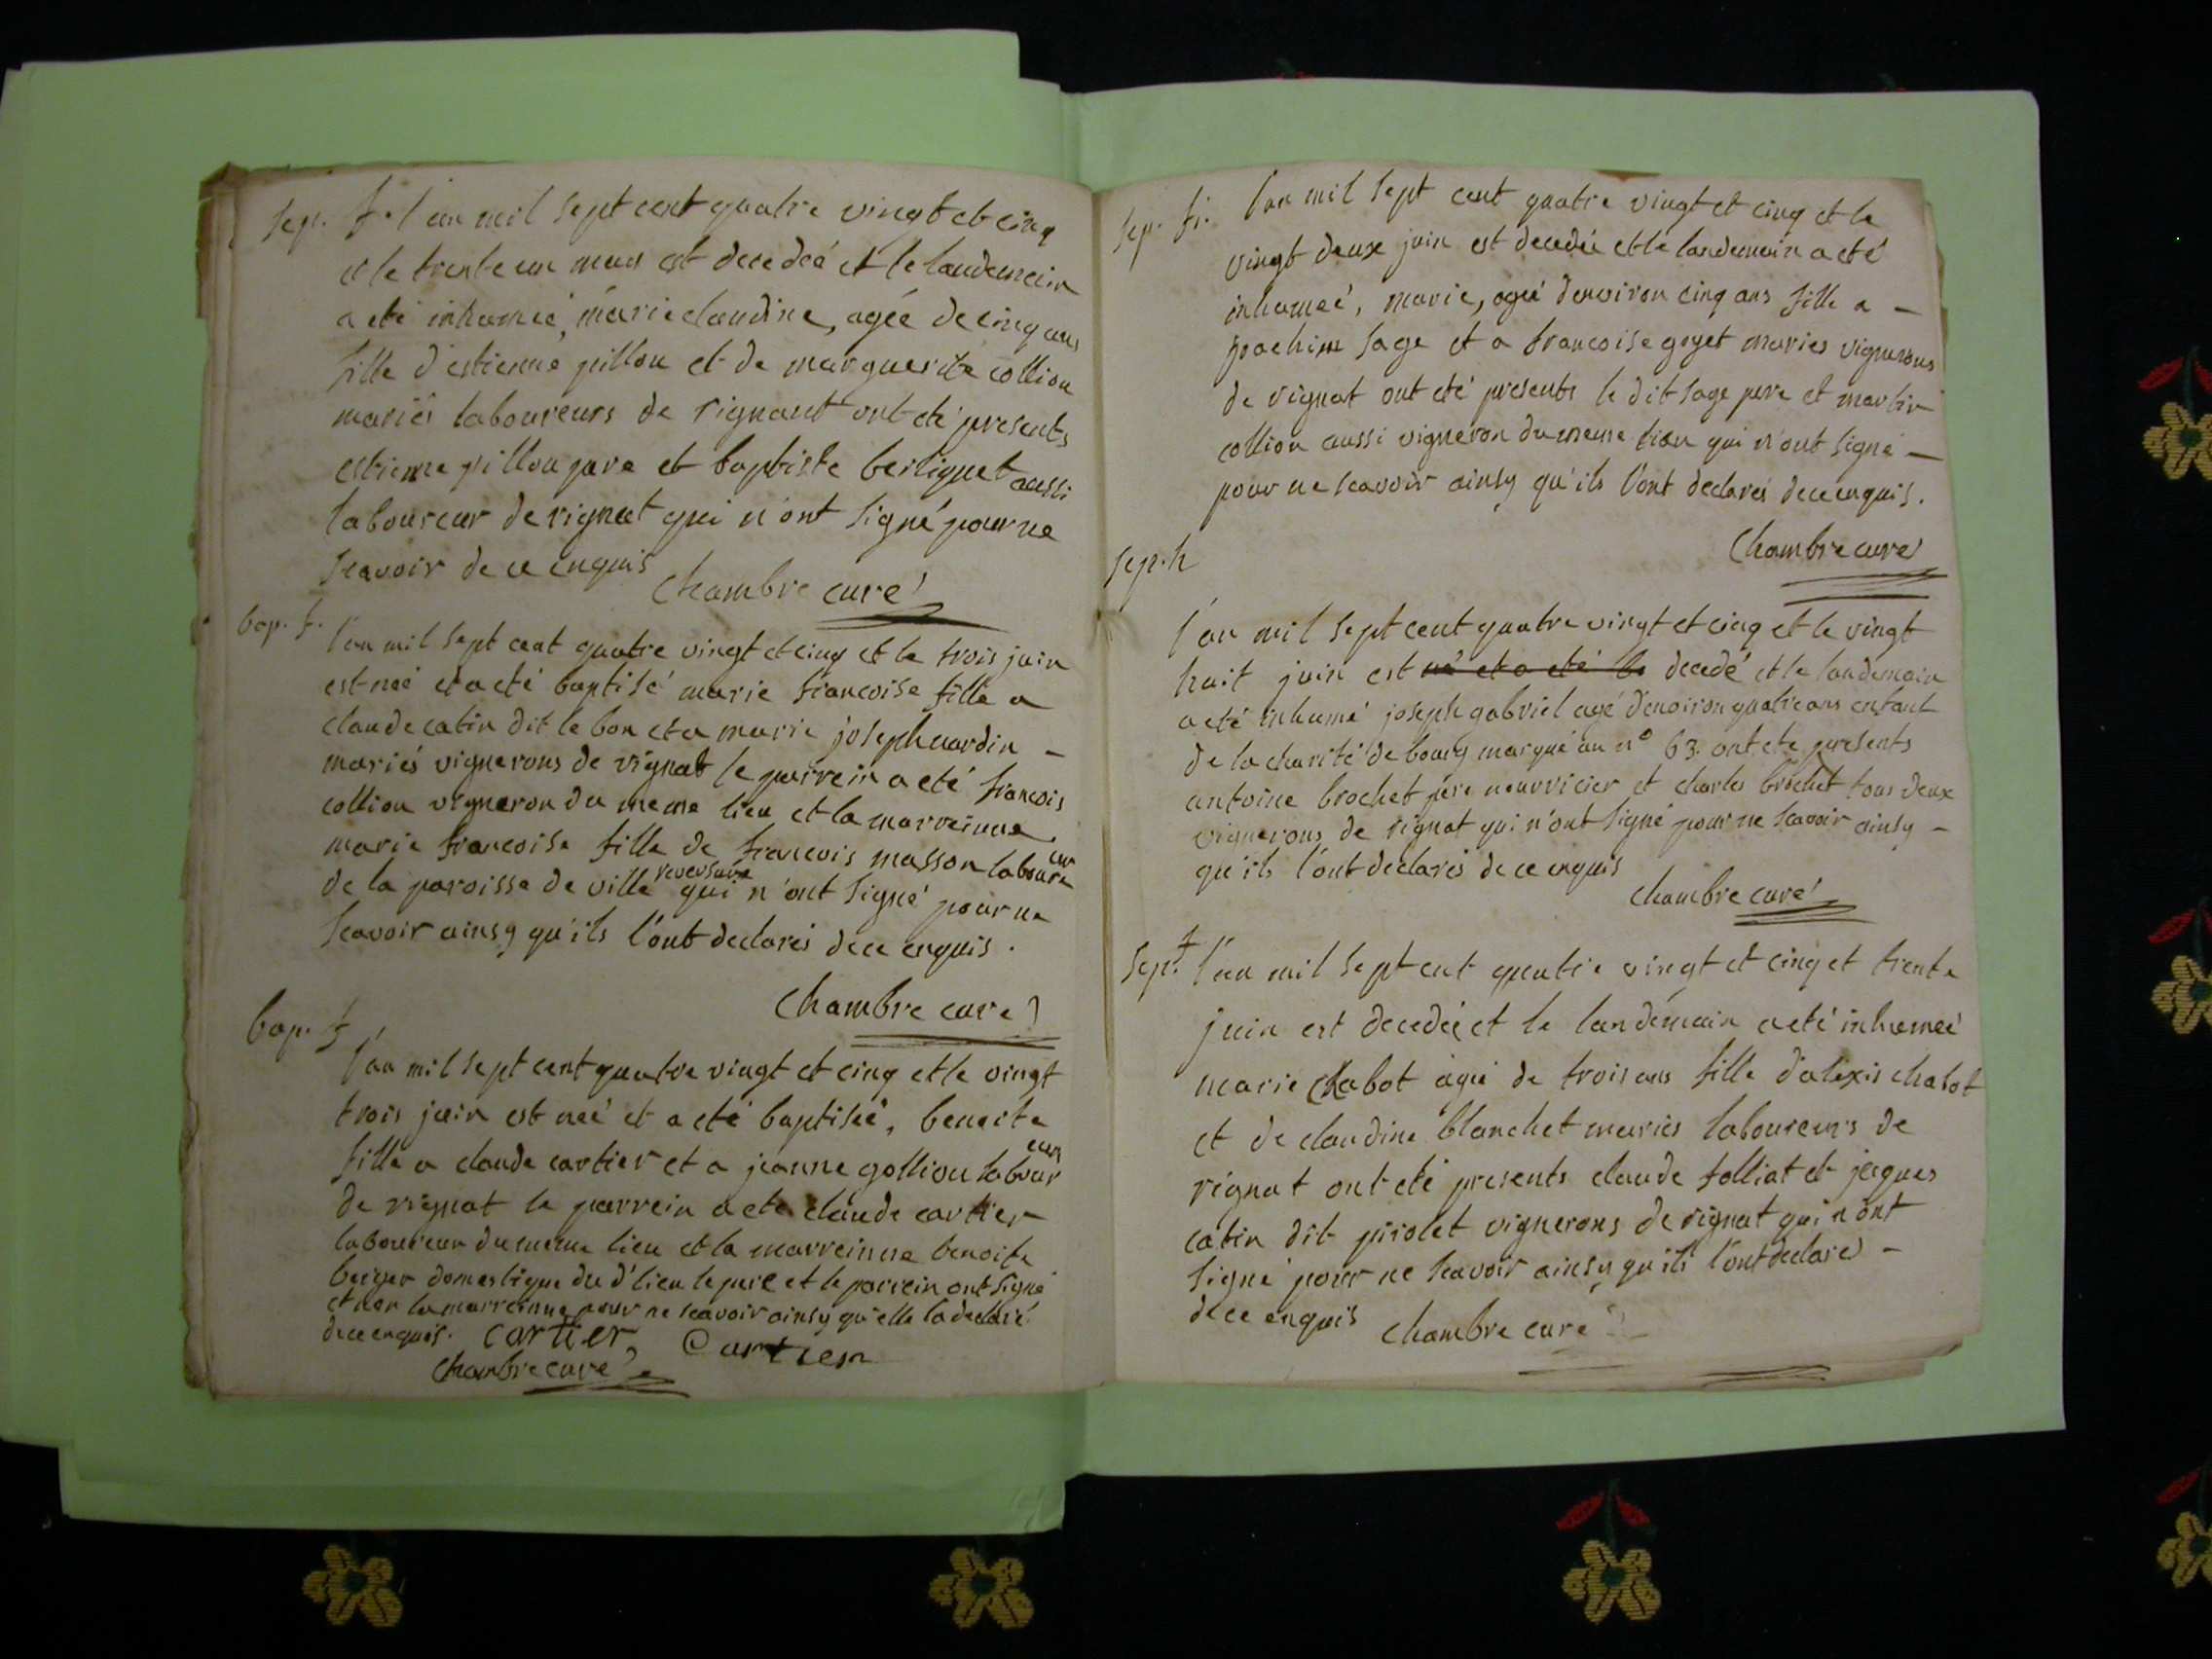 Sep. f. l'an mil sept cent quatre vingt et cinq
et le trente un mars est decedeé et le landemain
a eté inhumeé, marie claudine, agée de cinq ans
fille d'estienne pillou et de marguerite collion
mariés laboureurs de rignaut ont eté presents
estienne pillou pere et baptiste berliquet aussi
laboureur de rignat qui n'ont signé pour ne
scavoir de ce enquis
Chambre curé
bap. f. l'an mil sept cent quatre vingt et cinq et le trois juin
est neé et a eté baptisé marie francoise fille a
claude catin dit le bon et a marie joseph nardin -
mariés vignerons de rignat le parrein a eté francois
collion vigneron du meme lieu et la marreinne
marie francoise fille de francois masson laboureur
de la paroisse de ville reversure qui n'ont signé pour ne
scavoir ainsy qu'ils l'ont declarés de ce enquis.
Chambre curé
bap. f
l'an mil sept cent quatre vingt et cinq et le vingt
trois juin est neé et a eté baptiseé, benoite
fille a claude cartier et a jeanne gollion laboureurs
de rignat le parrein a eté claude cartier
laboureur du meme lieu et la marreinne benoite
berger domestique du d' lieu le pere et le parrein ont signé
et non la marreinne pour ne scavoir ainsy qu'elle la declaré
de ce enquis. cartier, Cartier
Chambre curé
Sep. fi. l'an mil sept cent quatre vingt et cinq et le
vingt deux juin est decedeé et le landemain a eté
inhumeé, marie, ageé d'environ cinq ans fille a -
joachim sage et a francoise goyet mariés vignerons
de rignat ont eté presents le dit sage pere et martin
collion aussi vigneron du meme lieu qui n'ont signé -
pour ne scavoir ainsy qu'ils l'ont declarés de ce enquis.
Chambre curé
Sep. h
l'an mil sept cent quatre vingt et cinq et le vingt
huit juin est né et a eté b decedé et le landemain
a eté inhumé joseph gabriel agé d'environ quatre ans enfant
de la charité de bourg marqué au n° 63. ont eté presents
antoine brochet pere nourricier et charles brochet tous deux
vignerons de rignat qui n'ont signé pour ne scavoir ainsy -
qu'ils l'ont declarés de ce enquis
Chambre curé
Sep. f l'an mil sept cent quatre vingt et cinq et trente
juin est decedeé et le landemain a eté inhumeé
marie Chabot ageé de trois ans fille d'alexis chabot
et de claudine blanchet mariés laboureurs de
rignat ont eté presents claude folliat et jaques
catin dit pirolet vignerons de rignat qui n'ont
signé pour ne scavoir ainsy qu'ils l'ont declaré -
de ce enquis Chambre curé